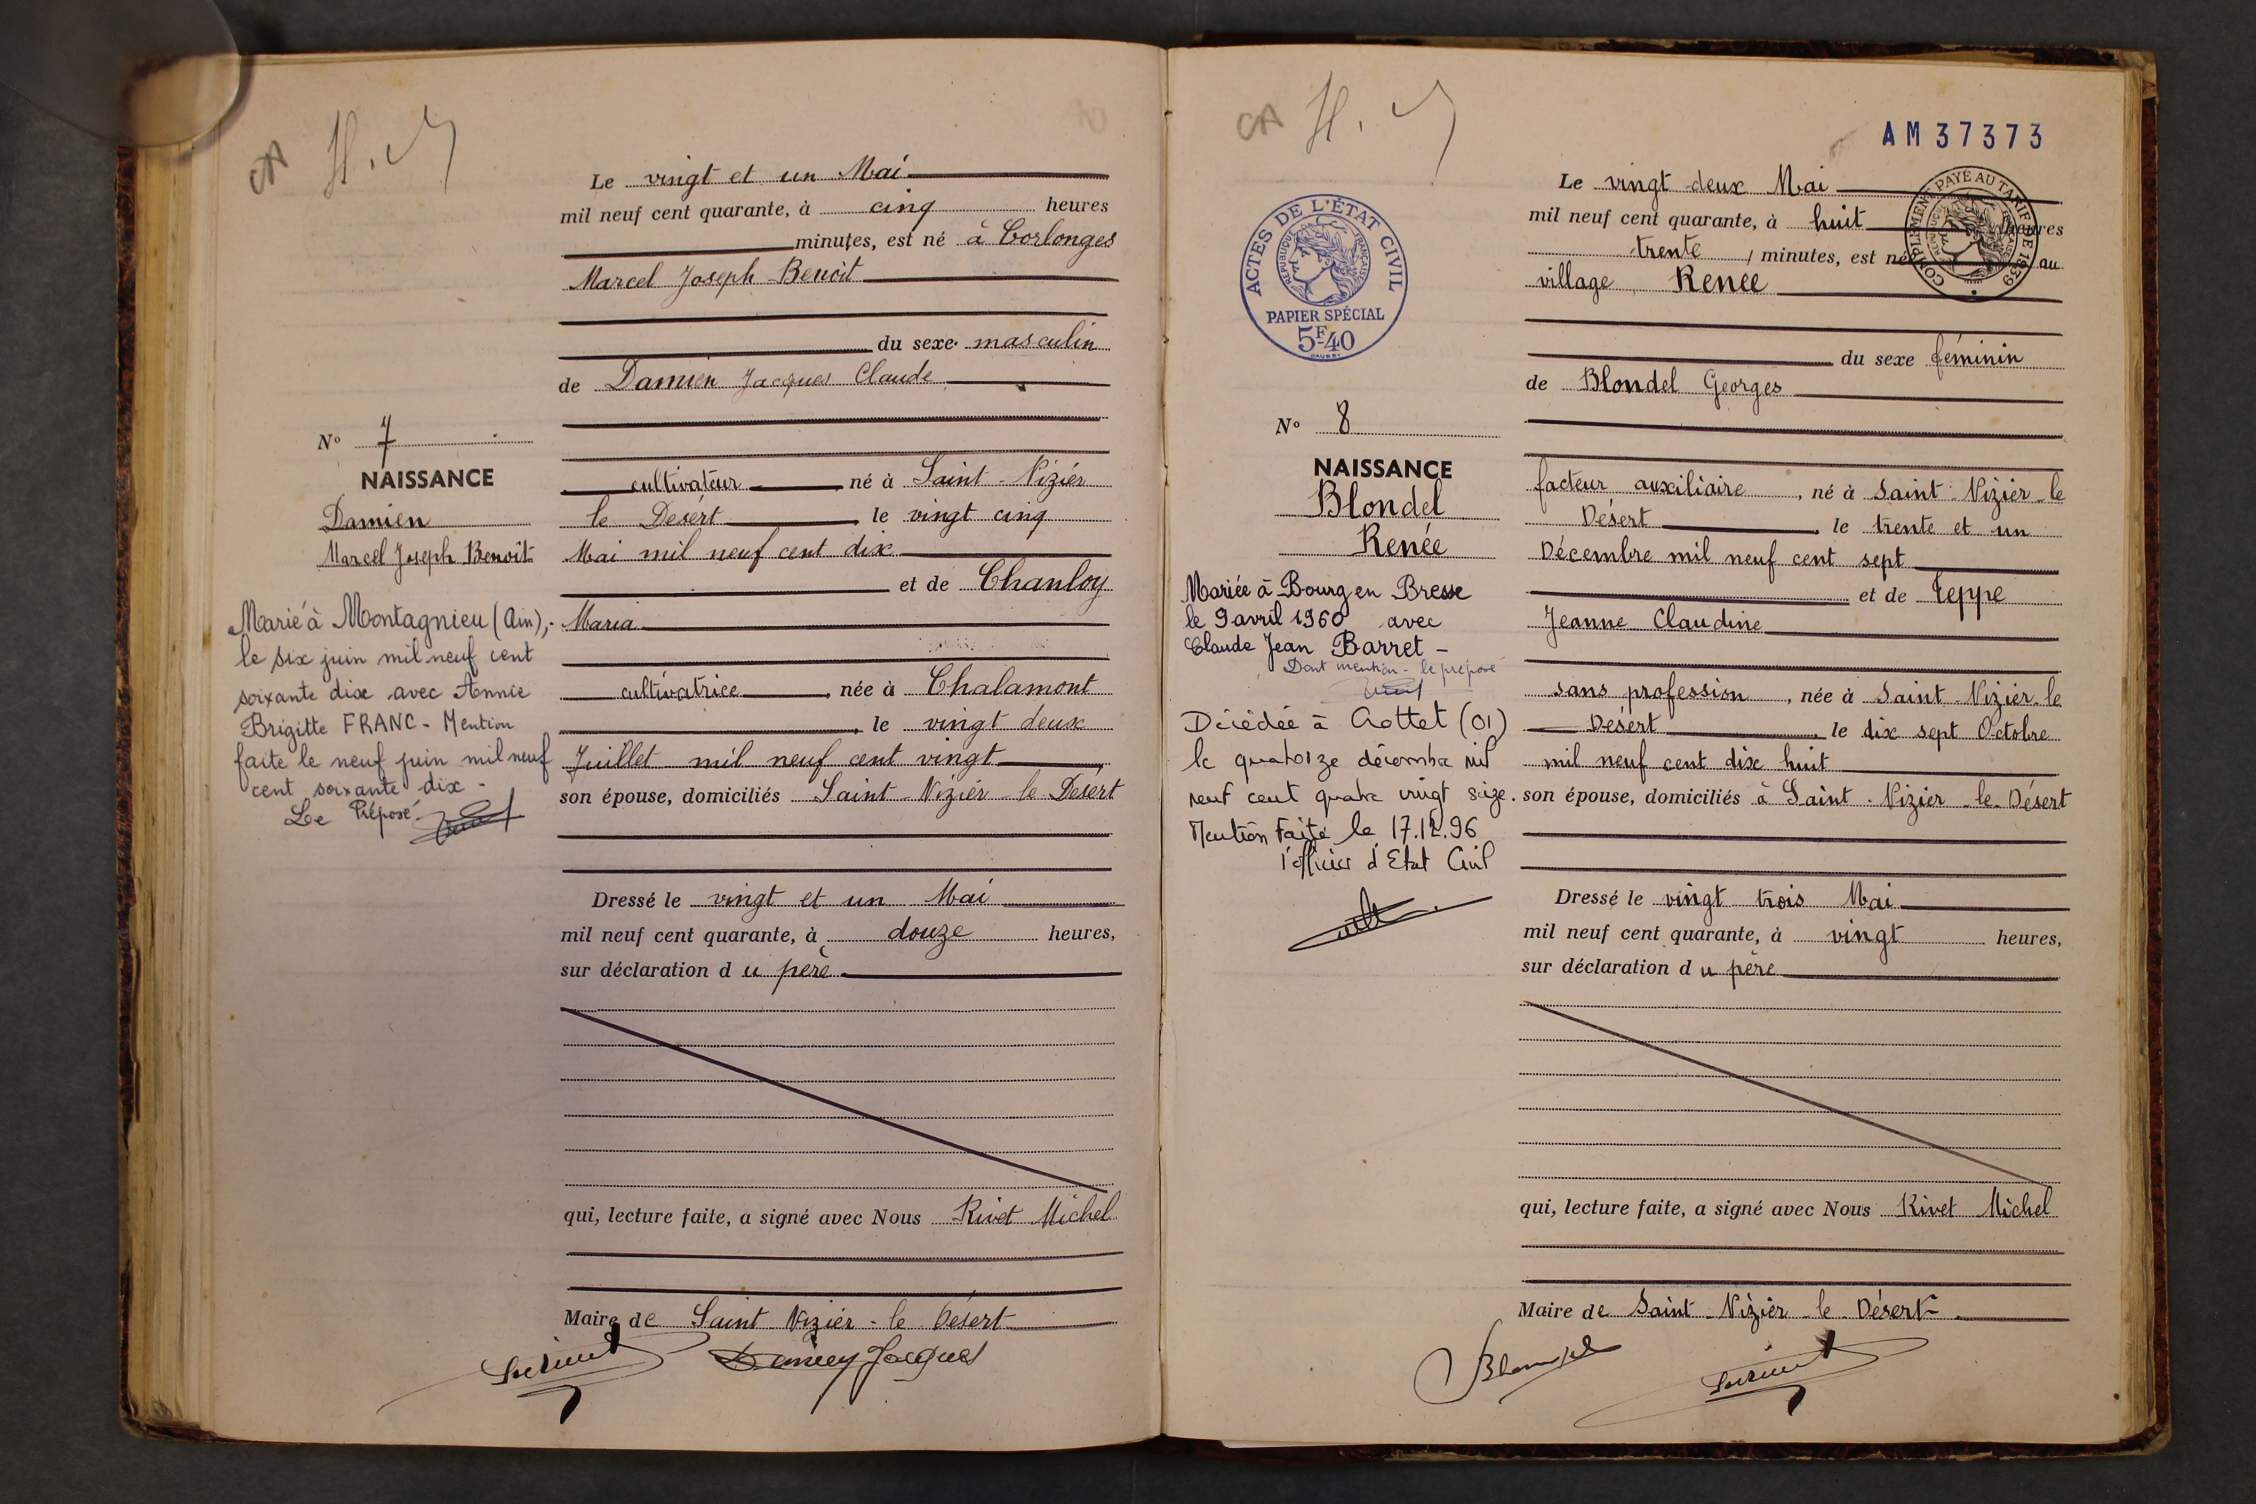 CA H.
Le vingt et un Mai
mil neuf cent quarante, à cinq heures
minutes, est né à Corlonges
Marcel Joseph Benoit
du sexe masculin
de Damien Jacques Claude
cultivateur né à Saint-Nizier
le Désert le vingt cinq
Mai mil neuf cent dix
et de Chanloy
Maria
cultivatrice, née à Chalamont
, le vingt deux
Juillet mil neuf cent vingt
son épouse, domiciliés Saint-Nizier-le Désert
Dressé le vingt et un Mai
mil neuf cent quarante, à douze heures,
sur déclaration du père
qui, lecture faite, a signé avec Nous Rivet Michel
Maire de Saint-Nizier-le Désert
Jacques
No 7
NAISSANCE
Damien
Marcel Joseph Benoît
Marié à Montagnieu (Ain),
le six juin mil neuf cent
soixante dix avec Annie
Brigitte FRANC - Mention
faite le neuf juin mil neuf
cent soixante dix -
Le Préposé
CA H.
AM37373
COMPLÉMENT PAYÉ AU TARIF DE 1939
RÉPUBLIQUE FRANÇAISE
ACTES DE L'ÉTAT CIVIL
RÉPUBLIQUE FRANÇAISE
PAPIER SPÉCIAL
5F40
Le vingt deux Mai
mil neuf cent quarante, à huit heures
trente minutes, est né au
village Renée
du sexe féminin
de Blondel Georges
facteur auxiliaire, né à Saint-Nizier-le
Désert le trente et un
Décembre mil neuf cent sept
et de Teppe
Jeanne Claudine
sans profession, née à Saint-Nizier-le
Désert, le dix sept Octobre
mil neuf cent dix huit
son épouse, domiciliés à Saint-Nizier-le-Désert
Dressé le vingt trois Mai
mil neuf cent quarante, à vingt heures,
sur déclaration du père
qui, lecture faite, a signé avec Nous Rivet Michel
Maire de Saint-Nizier-le-Désert
No 8
NAISSANCE
Blondel
Renée
Mariée à Bourg en Bresse
le 9 avril 1960 avec
Claude Jean Barret -
Dont mention - le préposé
Décédée à Crottet (01)
le quatorze décembre mil
neuf cent quatre vingt seize.
Mention faite le 17.12.96
l'officier d'Etat Civil